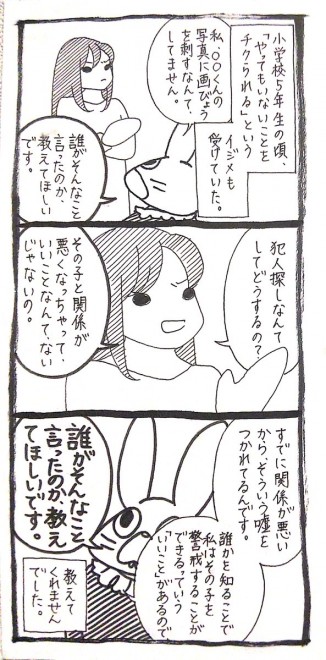 小学校5年生の頃、
「やってもいないことを
チクられる」という
イジメも
受けていた。
私、〇〇くんの
写真に画びょう
を刺すなんて、
してません。
誰がそんなこと
言ったのか、
教えてほしい
です。
犯人探しなんて
してどうするの?
その子と関係が
悪くなっちゃって、
いいことなんて、ない
じゃないの。
すでに関係が悪い
から、そういう嘘を
つかれてるんです。
誰かを知ることで
私はその子を
警戒することが
できるっていう
「いいこと」があるので
誰がそんなこと
言ったのか教え
てほしいです。
教えて
くれません
でした。